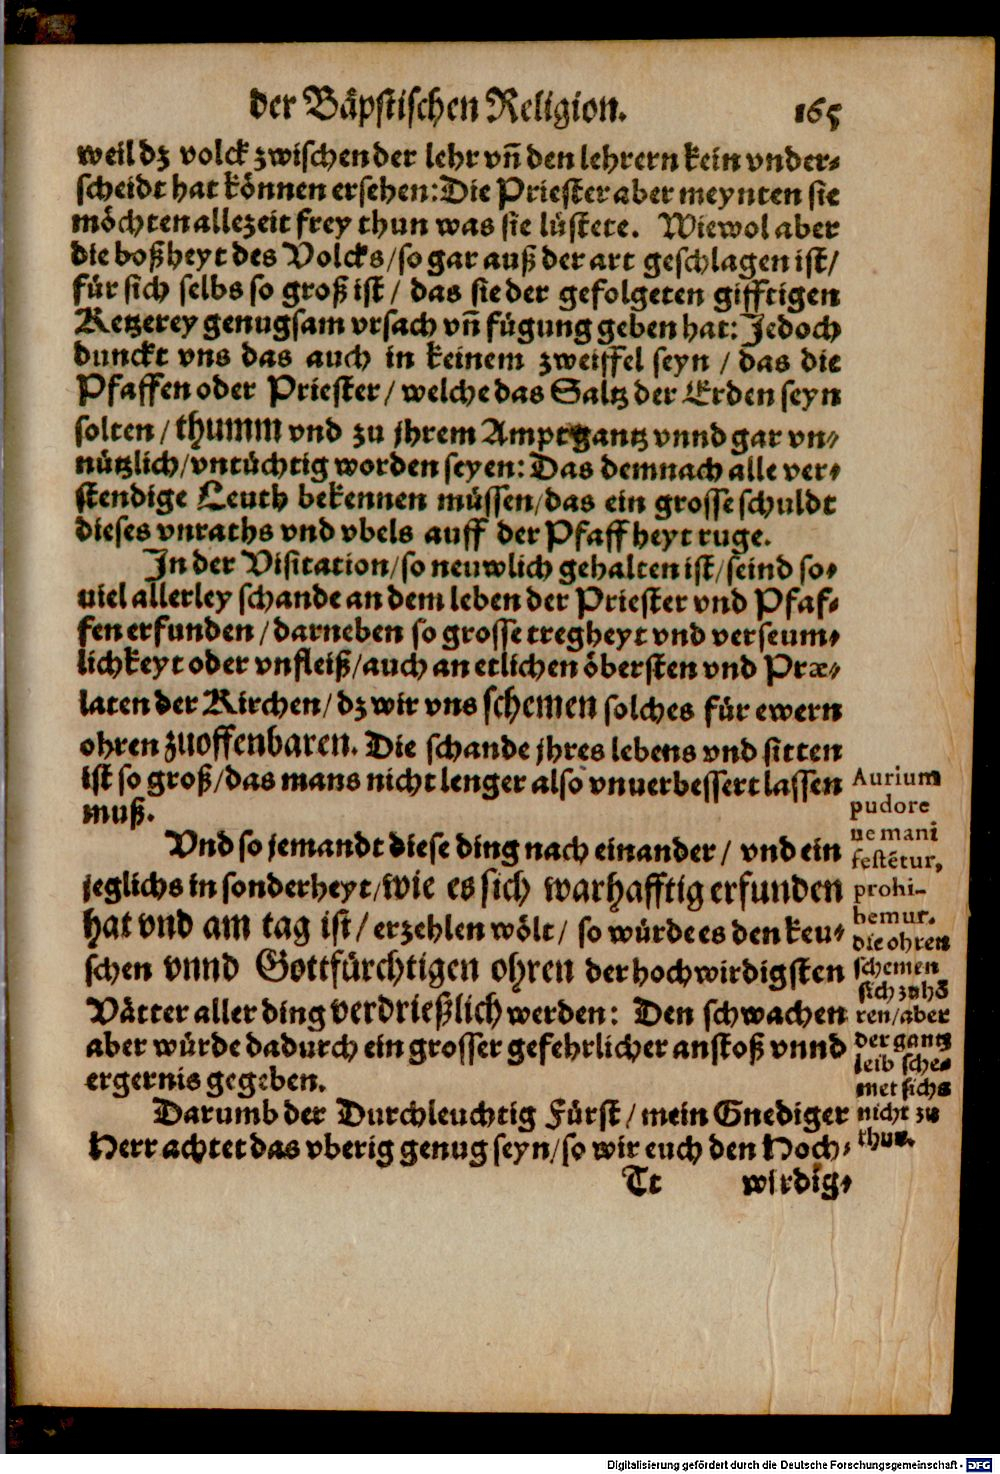 der Bäpstischen Religion. 165
weil dz volck zwischen der lehr vñ den lehrern kein vnder-
scheidt hat können ersehen: Die Priester aber meynten sie
möchten allezeit frey thun was sie lüstete. Wiewol aber
die boßheyt des Volcks/ so gar auß der art geschlagen ist/
für sich selbs so groß ist/ das sie der gefolgeten gifftigen
Ketzerey genugsam vrsach vñ fügung geben hat: Jedoch
dunckt vns das auch in keinem zweiffel seyn / das die
Pfaffen oder Priester/ welche das Saltz der Erden seyn
solten/ thumm vnd zu jhrem Ampt gantz vnnd gar vn-
nützlich/ vntüchtig worden seyen: Das demnach alle ver-
stendige Leuth bekennen müssen/ das ein grosse schuldt
dieses vnraths vnd vbels auff der Pfaffheyt ruge.
In der Visitation/ so neuwlich gehalten ist/ seind so-
uiel allerley schande an dem leben der Priester vnd Pfaf-
fen erfunden/ darneben so grosse tregheyt vnd verseum-
lichkeyt oder vnfleiß/ auch an etlichen öbersten vnd Præ-
laten der Kirchen/ dz wir vns schemen solches für ewern
ohren zuoffenbaren. Die schande jhres lebens vnd sitten
ist so groß/ das mans nicht lenger also vnuerbessert lassen
muß.
Vnd so jemandt diese ding nach einander/ vnd ein
jeglichs in sonderheyt/ wie es sich warhafftig erfunden
hat vnd am tag ist/ erzehlen wölt/ so würde es den keu-
schen vnnd Gottfürchtigen ohren der hochwirdigsten
Vätter aller ding verdrießlich werden: Den schwachen
aber würde dadurch ein grosser gefehrlicher anstoß vnnd
ergernis gegeben.
Darumb der Durchleuchtig Fürst/ mein Gnediger
Herr achtet das vberig genug seyn/ so wir euch den Hoch-
Tt wirdig-
Aurium
pudore
ne mani
festētur,
prohi-
bemur.
die ohren
schemen
sich zuhö
ren/ aber
der gantz
leib sche-
met sichs
nicht zu
thun.
Digitalisierung gefördert durch die Deutsche Forschungsgemeinschaft - DFG